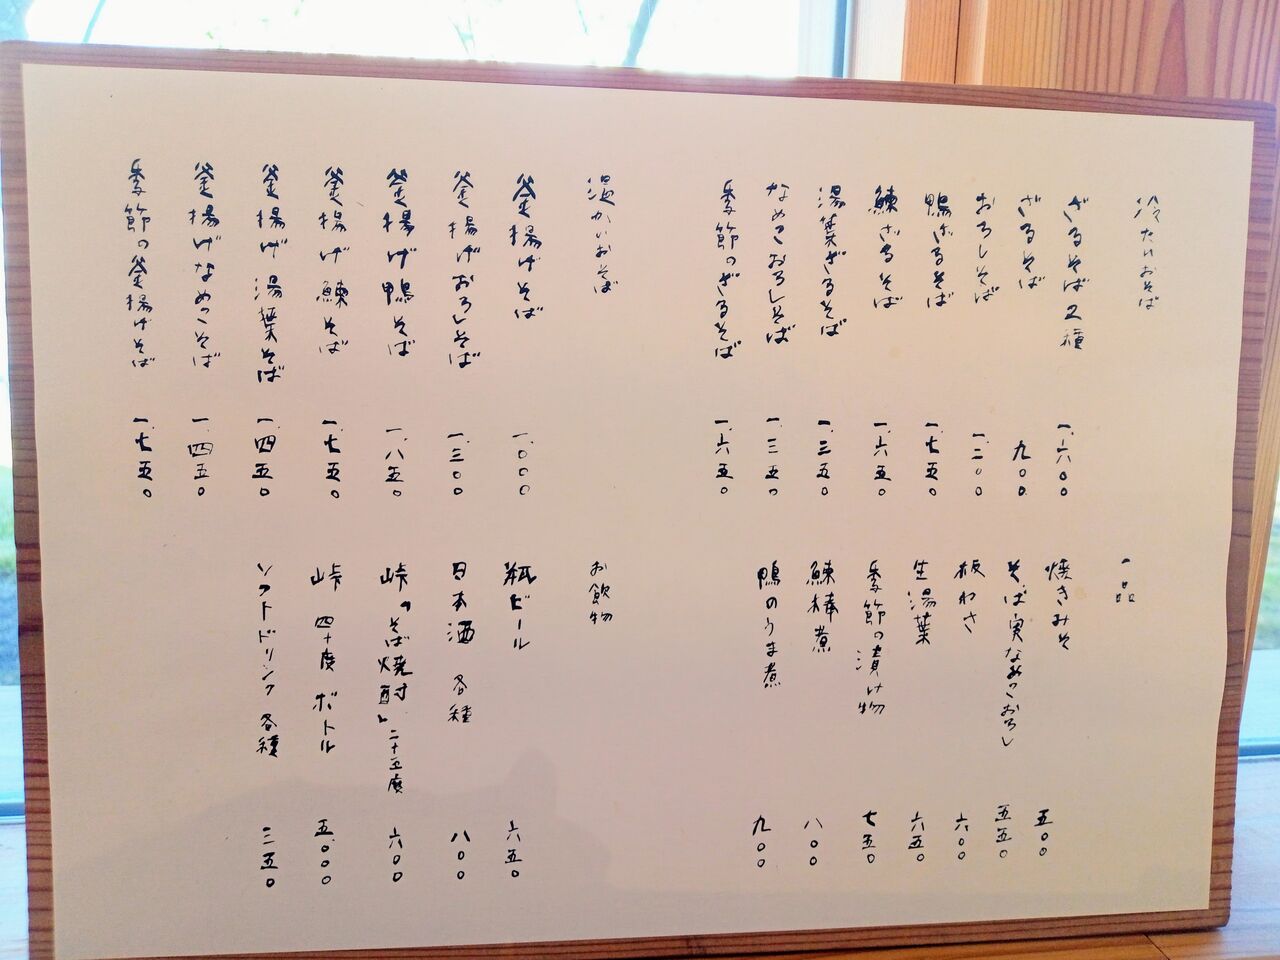 冷たいおそば
ざるそば2種 一、六〇〇
ざるそば 九〇〇
おろしそば 一、二〇〇
鴨ざるそば 一、七五〇
鰊ざるそば 一、六五〇
湯葉ざるそば 一、三五〇
なめこおろしそば 一、三五〇
季節のざるそば 一、六五〇
温かいおそば
釜揚げそば 一、〇〇〇
釜揚げおろしそば 一、三〇〇
釜揚げ鴨そば 一、八五〇
釜揚げ鰊そば 一、七五〇
釜揚げ湯葉そば 一、四五〇
釜揚げなめこそば 一、四五〇
季節の釜揚げそば 一、七五〇
一品
焼きみそ 五〇〇
そば実なめこおろし 五五〇
板わさ 六〇〇
生湯葉 六五〇
季節の漬け物 七五〇
鰊棒煮 八〇〇
鴨のうま煮 九〇〇
お飲物
瓶ビール 六五〇
日本酒 各種 八〇〇
峠「そば焼酎」二十五度 六〇〇
峠 四十度 ボトル 五〇〇〇
ソフトドリンク 各種 三五〇